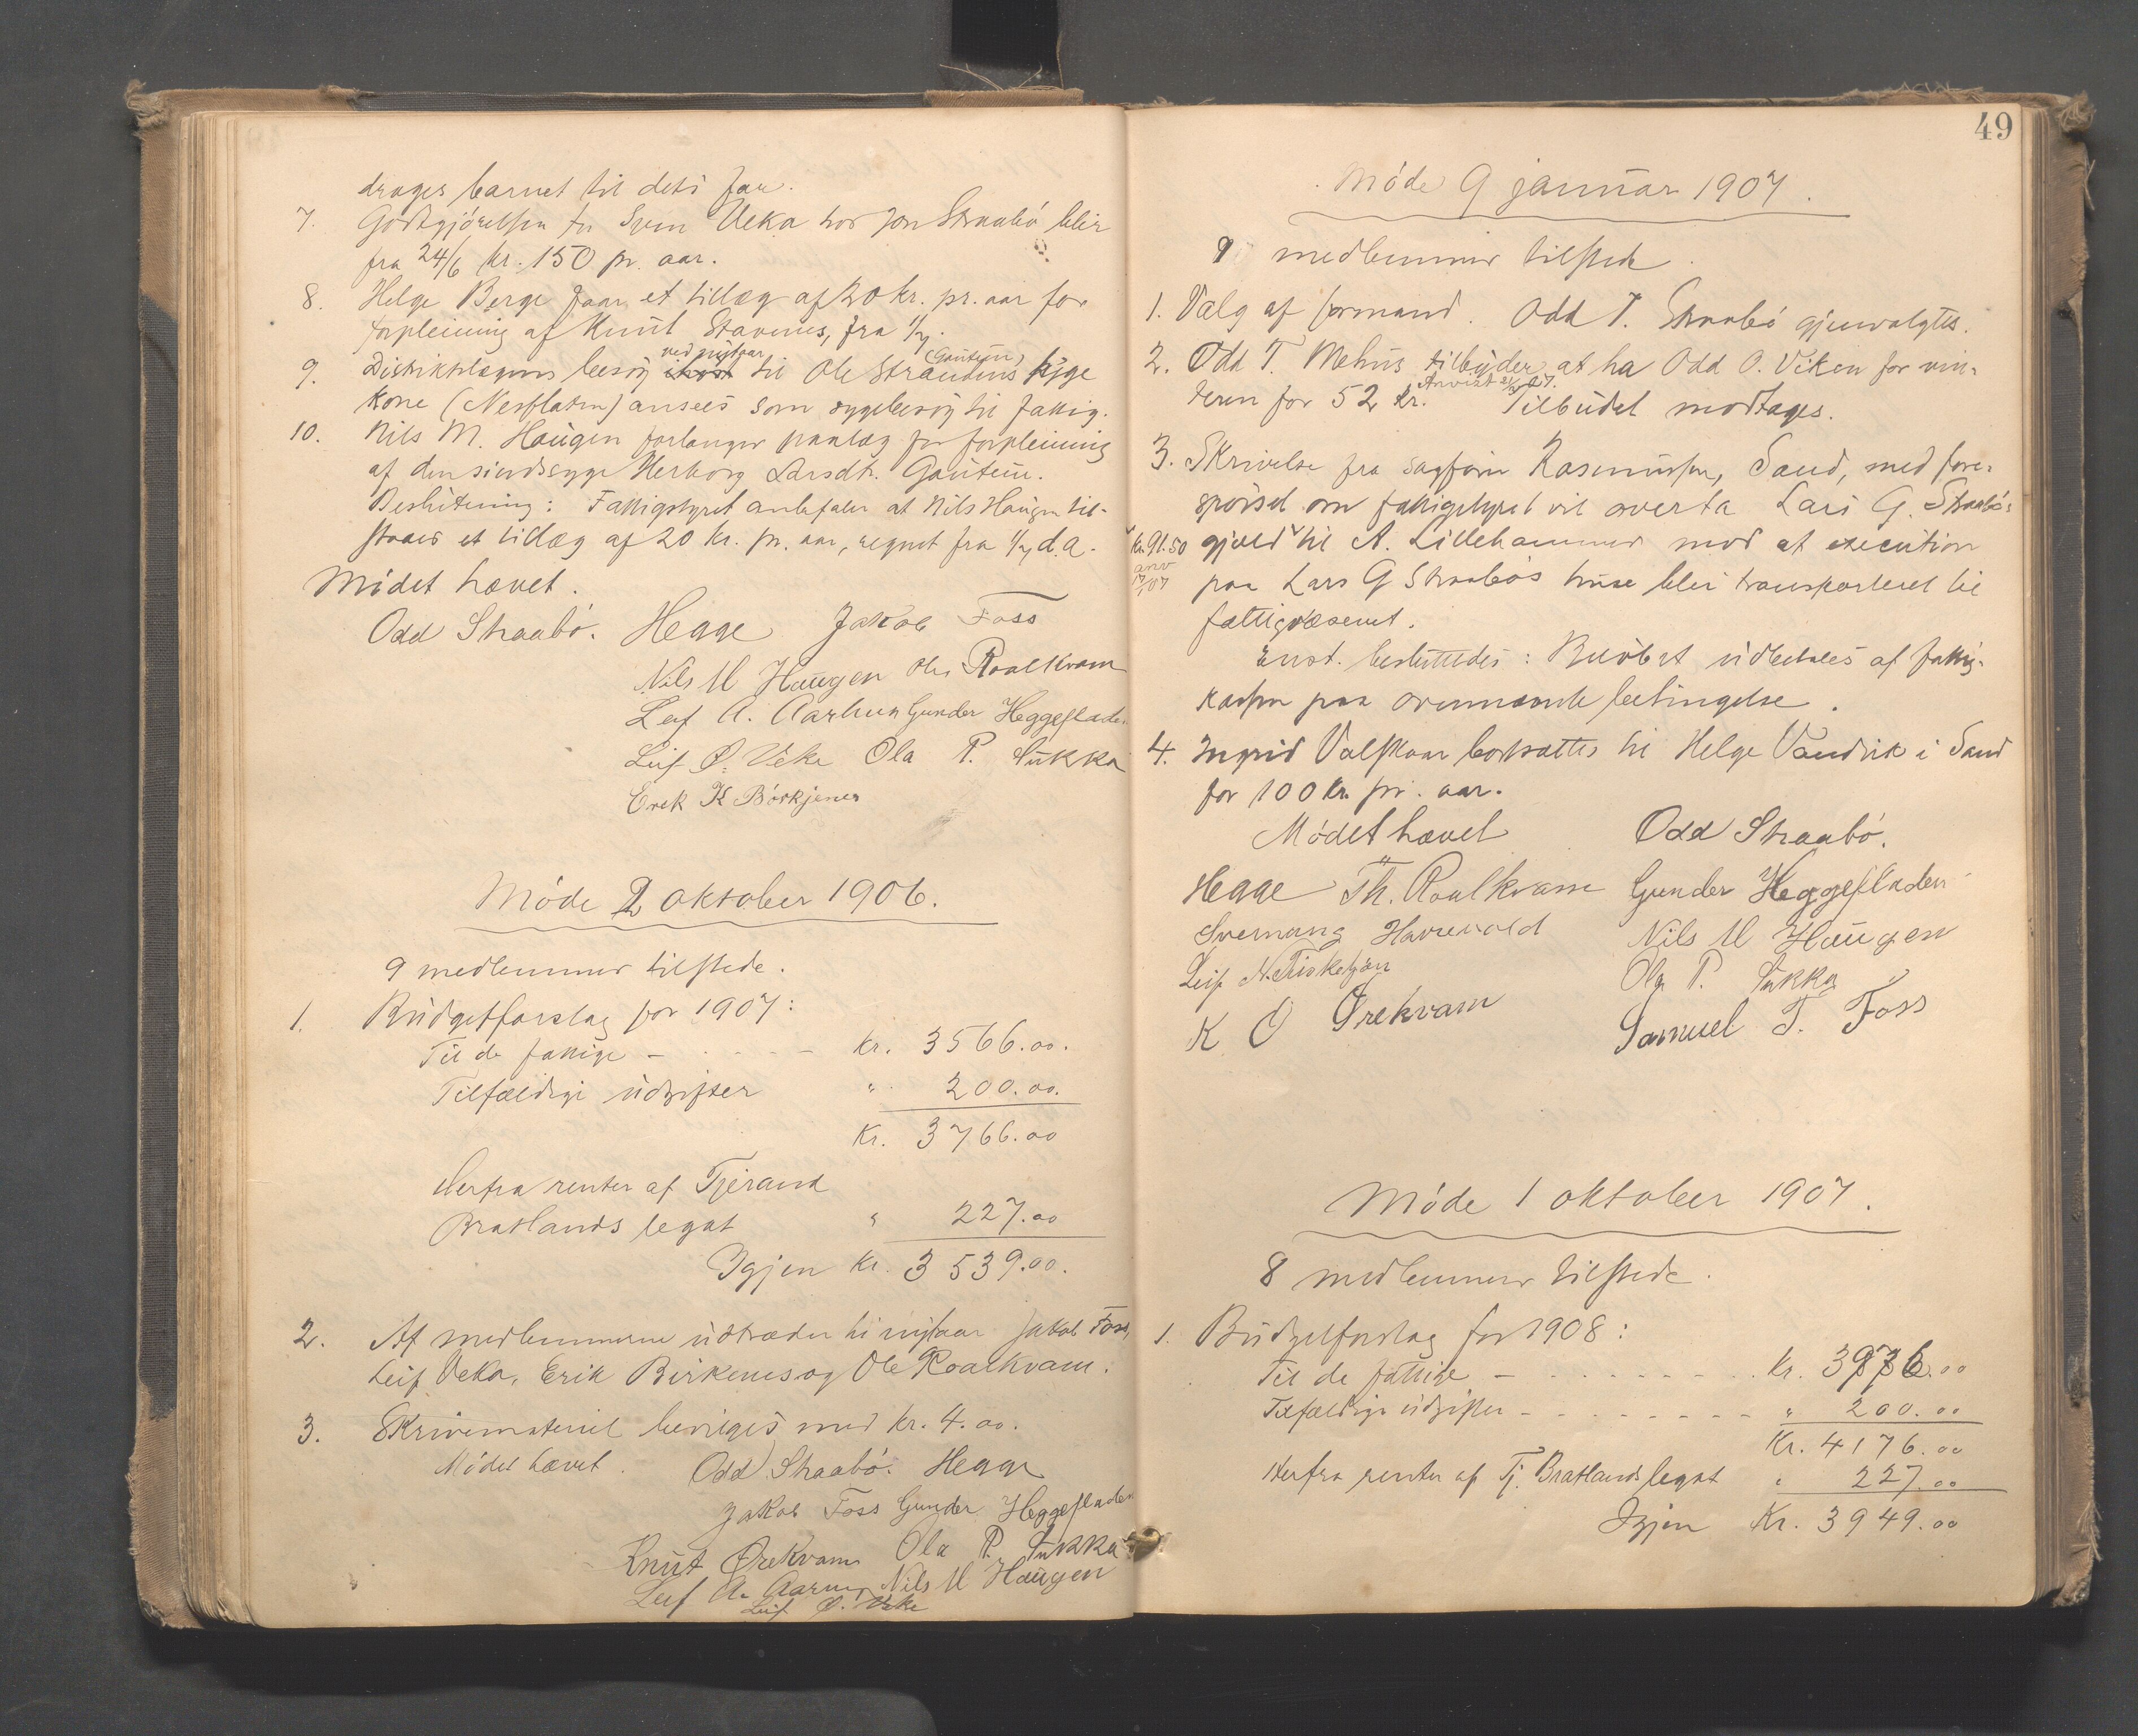 drages barnet til dets far.
7. Godtgjörelsen for Sven Veka hos Jon Straabö blir
fra 24/6 kr. 150 pr. aar.
8. Helge Berge faar et tillæg af 20 kr. pr. aar for
forpleining af Knut Stavnes, fra 1/7.
ved nytaar (Gautun)
9. Distriktslægens besög ihöst til Ole Strandens syge
kone (Nesflaten) ansees som sygebesög til fattig.
10. Nils M. Haugen forlanger paalæg for forpleining
af den sindssyge Herborg Larsdtr. Gautun.
Beslutning: Fattigstyret anbefaler at Nils Haugen til-
staaes et tillæg af 20 kr. pr. aar, regnet fra 1/7 d.a.
Mödet hævet.
Odd Straabö. Hegge Jakob Foss
Nils M Haugen Ole Roalkvam
Leif A. Aarhus Gunder Heggefladen
Leif Ö. Veka Ola P. Sukka
Erek K Börkjenes
Möde 2 oktober 1906.
9 medlemmer tilstede.
1. Budgetforslag for 1907:
Til de fattige - - - - - kr. 3566.00.
Tilfældige udgifter " 200.00.
Kr. 3766.00
Herfra renter af Tjerand
Bratlands legat " 227.00
Igjen kr. 3539.00.
2. Af medlemmerne udtræder til nytaar Jakob Foss,
Leif Veka, Erik Birkenes og Ole Roalkvam.
3. Skrivemateriel bevilges med kr. 4.00.
Mödet hævet. Odd Straabö. Hegge
Jakob Foss Gunder Heggefladen
Knut Ørekvam Ola P. Sukka
Leif A. Aarhus Nils M Haugen
Leif Ö. Veke
49
Möde 9 januar 1907.
9 medlemmer tilstede.
1. Valg af formand. Odd T. Straabö gjenvalgtes.
2. Odd T. Mehus tilbyder at ha Odd O. Viken for vin-
teren for 52 kr. Anvist 21/10 07. Tilbudet modtages.
3. Skrivelse fra sagförer Rasmussen, Sand, med fore-
spörsel om fattigstyret vil overta Lars G. Straabös
kr. 91.50 gjæld til A. Lillehammer mod at execution
anv 17/1 07 paa Lars G Straabös huse blir transporteret til
fattigvæsenet.
Enst. besluttedes: Belöbet udbetales af fattig-
kassen paa ovennævnte betingelse.
4. Ingrid Valskaar bortsattes til Helge Vandvik i Sand
for 100 kr. pr. aar.
Mödet hævet Odd Straabö.
Hegge Th. Roalkvam Gunder Heggefladen
Svernung Havrevold Nils M Haugen
Leif N. Fiskekjön Ola P. Sukka
K O Ørekvam Samuel T. Foss
Möde 1 oktober 1907.
8 medlemmer tilstede.
1. Budgetforslag for 1908:
Til de fattige - - - - - - - - kr. 3976.00
Tilfældige udgifter - - - - - - - - " 200.00
Kr. 4176.00
Herfra renter af Tj. Bratlands legat " 227.00
Igjen Kr. 3949.00